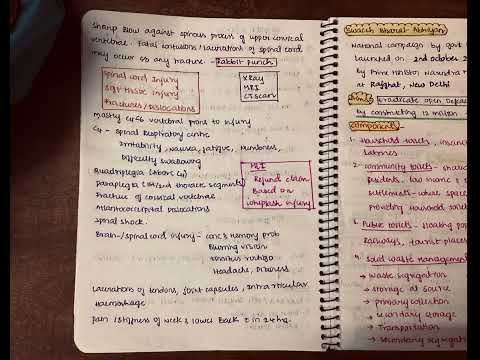 Sharp blow against spinous process of upper cervical
vertebrae. Fatal contusions/lacerations of spinal cord
may occur s/o any fracture - Rabbit punch
Spinal cord injury
Soft tissue injury
Fractures/Dislocations
X Ray
MRI
CT Scan
Mostly C4-C6 vertebral prone to injury
C4 - Spinal Respiratory centre
Irritability, nausea, fatigue, numbness,
difficulty swallowing
Quadriplegia (above C4)
Paraplegia (1st/2nd thoracic segments)
Fracture of cervical vertebrae
Atlantooccipital dislocations
Spinal shock
MRI
Refund claim
Based on
whiplash injury
Brain/spinal cord injury - conc & memory prob
Blurring vision
Tinnitus vertigo
Headache, Dizziness
Lacerations of tendons, joint capsules, intra articular
Haemorrhage
Pain/stiffness of neck & lower back in 24 hrs.
Swachh Bharat Abhiyan
National campaign by govt
Launched on 2nd October 2
by Prime Minister Narendra M
at Rajghat, New Delhi
eradicate open defeca
by constructing 12 million
Components
1. Household toilets,
latrines
2. Community toilets -
residents - low income
settlements - where space
providing household toilets
Public toilets - floating po
railways, tourist places
4. Solid waste management
→ Waste segregation
→ storage at source
→ primary collection
→ secondary storage
→ Transportation
→ secondary segregation